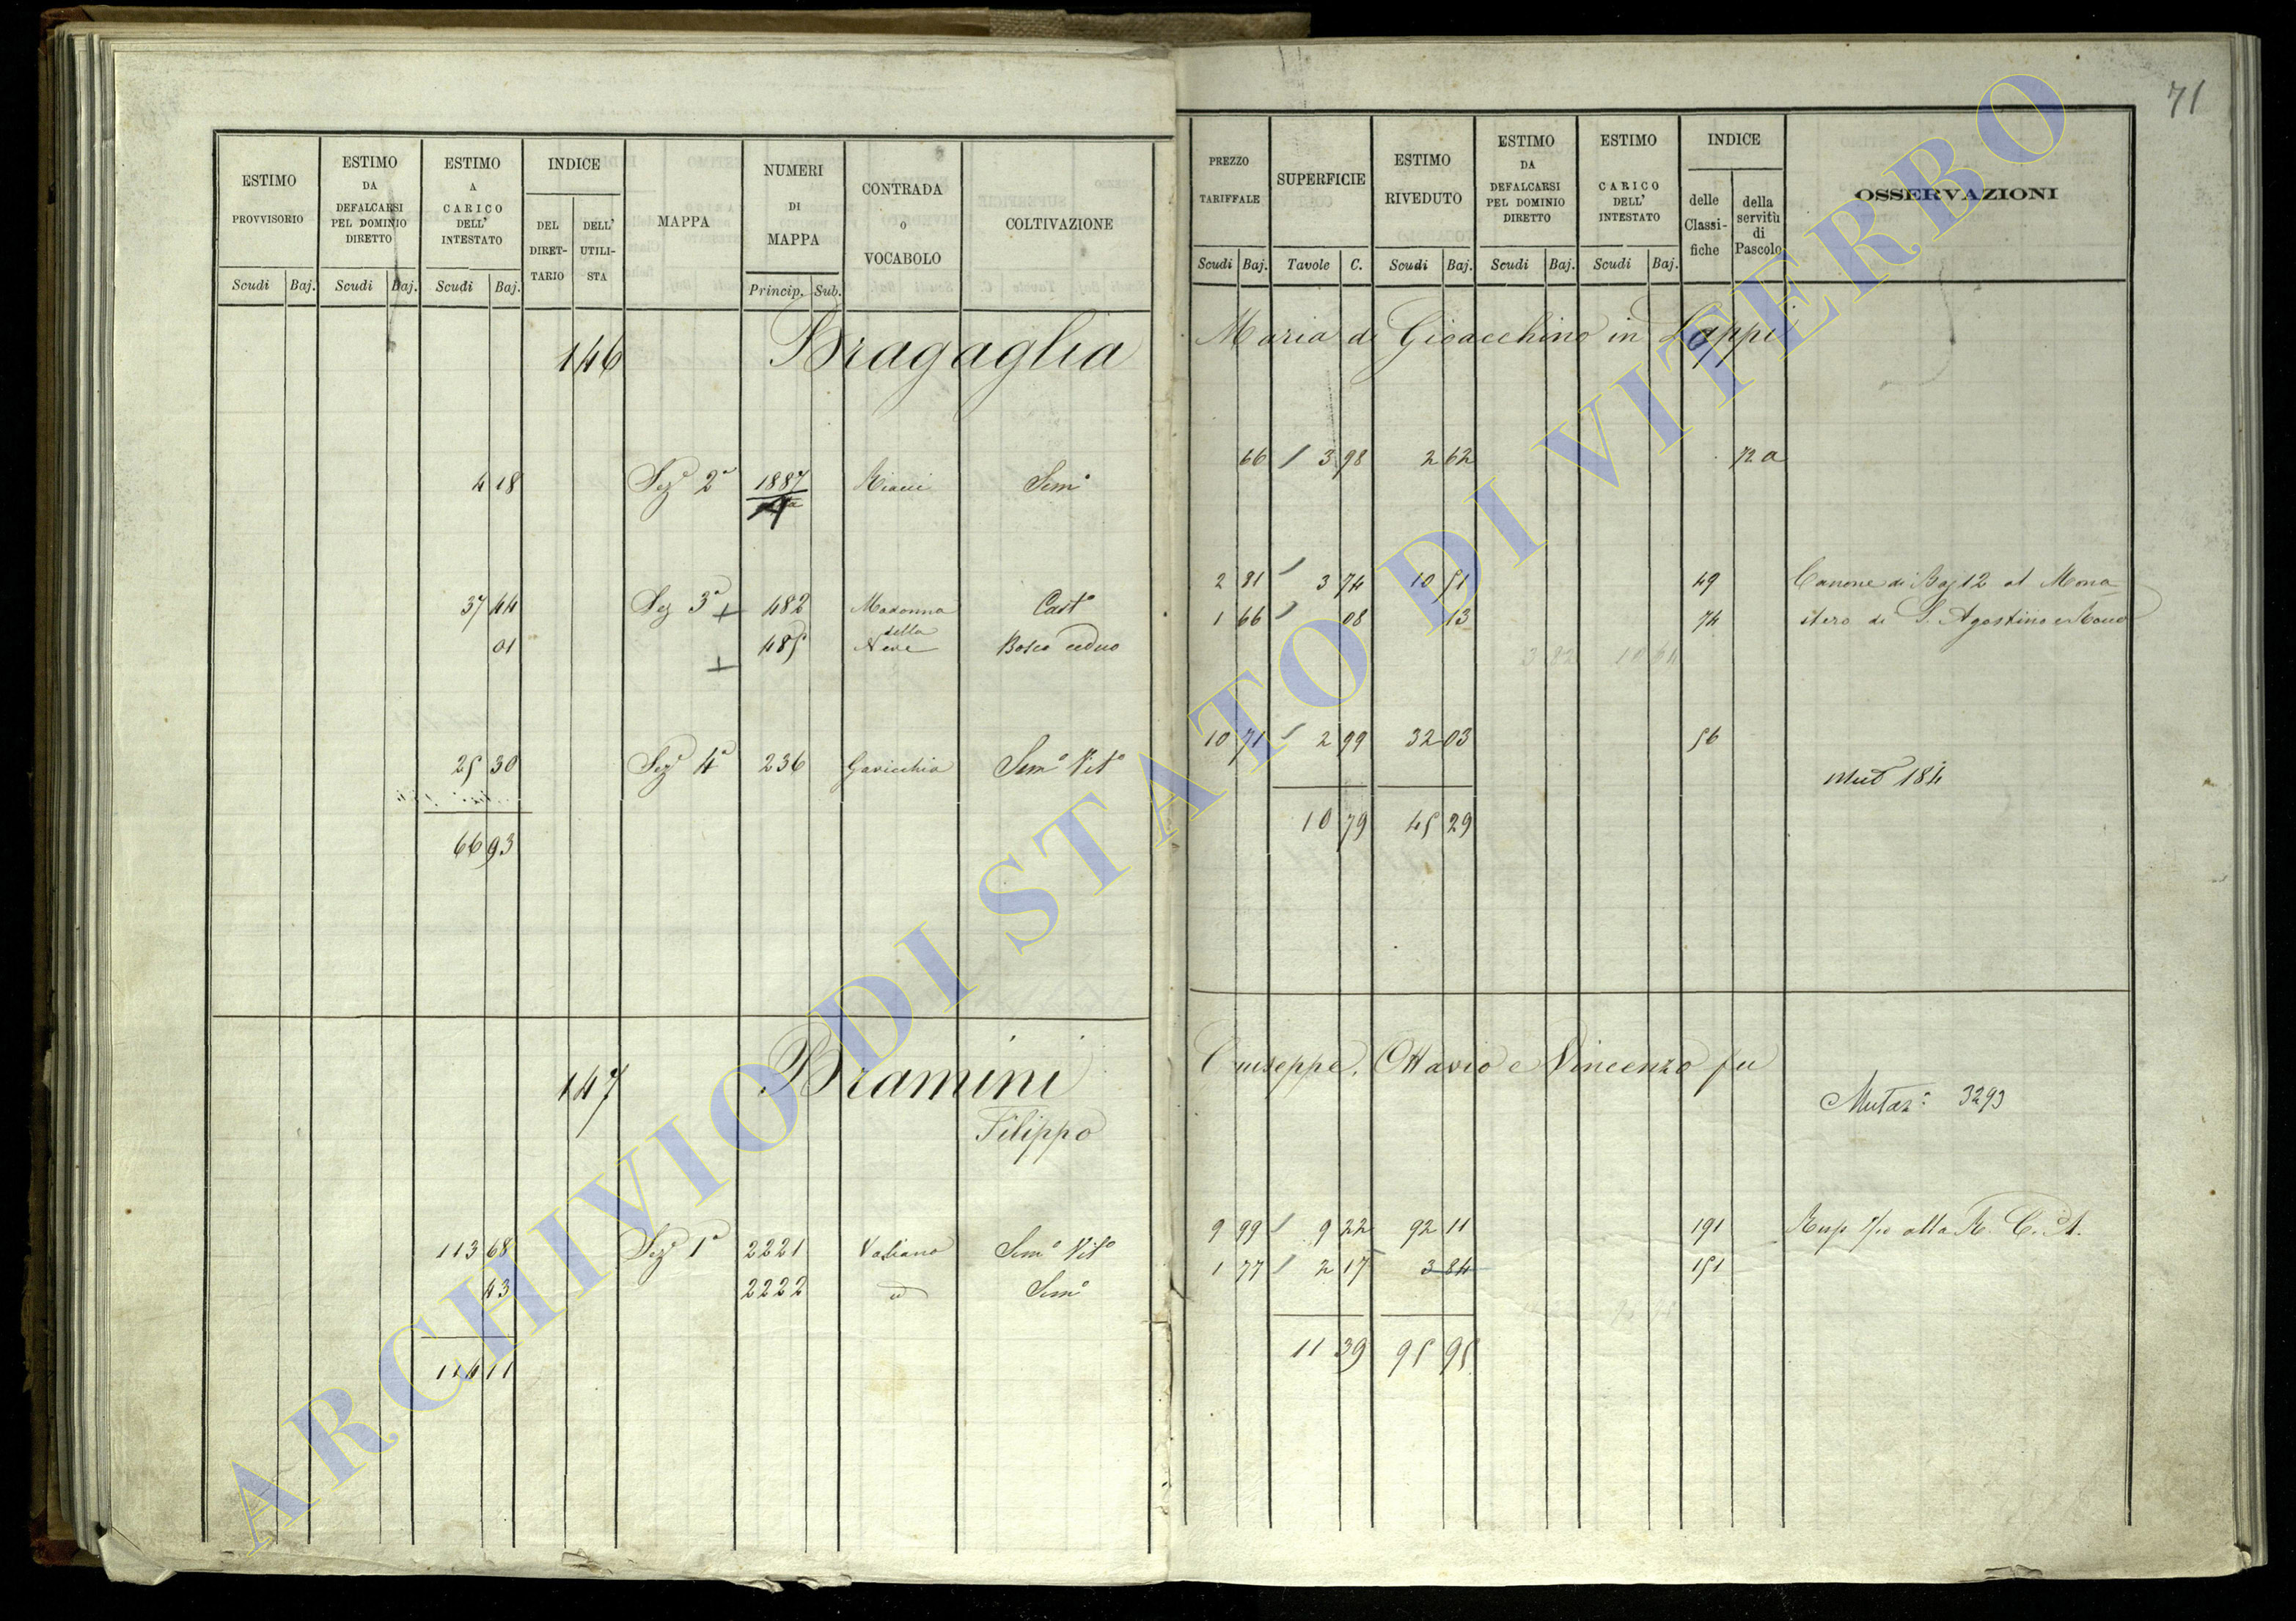 71
ESTIMO PROVVISORIO
Scudi Baj.
ESTIMO DA DEFALCARSI PEL DOMINIO DIRETTO
Scudi Baj.
ESTIMO A CARICO DELL' INTESTATO
Scudi Baj.
INDICE
DEL DIRET- TARIO
DELL' UTILI- STA
MAPPA
NUMERI DI MAPPA
Princip. Sub.
CONTRADA o VOCABOLO
COLTIVAZIONE
PREZZO TARIFFALE
Scudi Baj.
SUPERFICIE
Tavole C.
ESTIMO RIVEDUTO
Scudi Baj.
ESTIMO DA DEFALCARSI PEL DOMINIO DIRETTO
Scudi Baj.
ESTIMO CARICO DELL' INTESTATO
Scudi Baj.
INDICE
delle Classi- fiche
della servitù di Pascolo
OSSERVAZIONI
146 Bragaglia Maria di Gioacchino in Lappi
4 18 Seze 2a 1887 Semo 66 3 98 2 62 na
37 44 Sez 3a 482 Madonna Casto 2 81 3 74 10 51 49 Canone di Baj 12 al Mona
01 485 della Neve Bosco ceduo 1 66 08 13 74 stero di S. Agostino
3 82 10 64
25 30 Seze 4a 236 Gavicchio Semo Vito 10 71 2 99 32 03 56
Mut 184
66 93 10 79 45 29
147 Bramini Giuseppe, Ottavio e Vincenzo fu
Filippo
Mutaz: 3293
113 68 Seze 1a 2221 Valiano Semo Vito 9 99 9 22 92 11 191 alla R. C. A.
43 2222 id Semo 1 77 2 17 3 84 151
114 11 11 39 95 95
ARCHIVIO DI STATO DI VITERBO